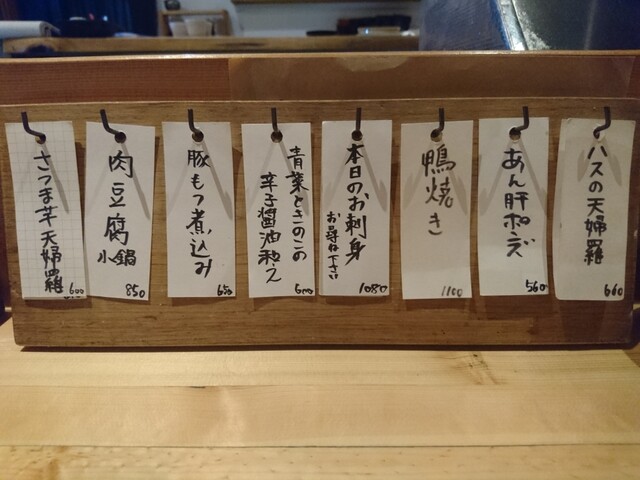 ハスの天婦羅
660
あん肝ポン酢
560
鴨焼き
1100
本日のお刺身
お尋ね下さい
1080
青菜ときのこの
辛子醤油和え
600
豚もつ煮込み
650
肉豆腐
小鍋
850
さつま芋天婦羅
600